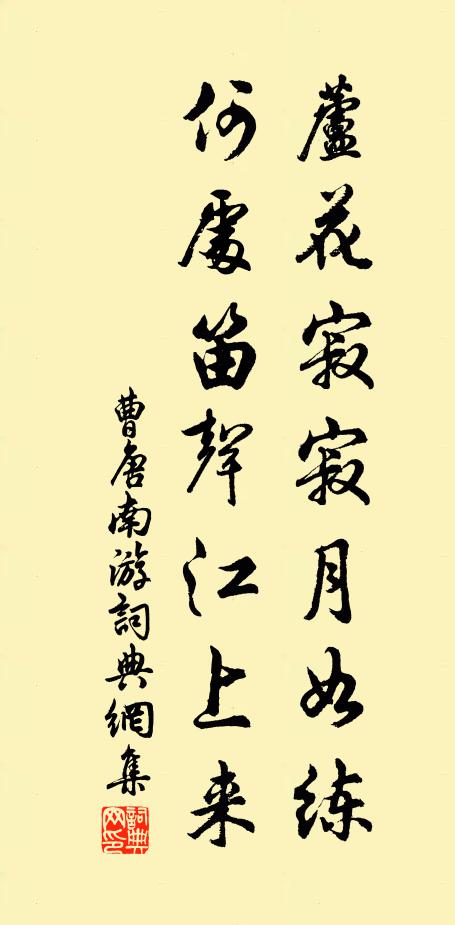 蘆花寂寂月如練
何處笛聲江上来
曹唐南游詞典網集
詞典网印